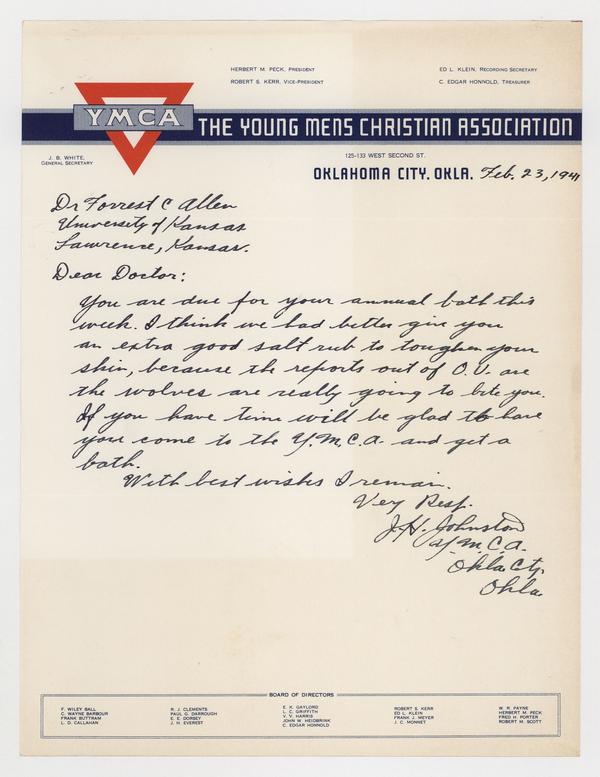 HERBERT M. PECK, PRESIDENT
ROBERT S. KERR, VICE-PRESIDENT
ED L. KLEIN, RECORDING SECRETARY
C. EDGAR HONNOLD, TREASURER
YMCA
THE YOUNG MENS CHRISTIAN ASSOCIATION
J. B. WHITE,
GENERAL SECRETARY
125-133 WEST SECOND ST.
OKLAHOMA CITY, OKLA. Feb. 23, 1941
Dr Forrest C Allen
University of Kansas
Lawrence, Kansas.
Dear Doctor:
You are due for your annual bath this
week. I think we had better give you
an extra good salt rub to toughen your
skin, because the reports out of O.U. are
the wolves are really going to bite you.
If you have time will be glad to have
you come to the Y.M.C.A. and get a
bath.
With best wishes I remain.
Very Resp.
J.H. Johnston
Y.M.C.A.
Okla. City,
Okla.
BOARD OF DIRECTORS
F. WILEY BALL
C. WAYNE BARBOUR
FRANK BUTTRAM
L. D. CALLAHAN
R. J. CLEMENTS
PAUL G. DARROUGH
E. E. DORSEY
J. H. EVEREST
E. K. GAYLORD
L. C. GRIFFITH
V. V. HARRIS
JOHN W. HEIDBRINK
C. EDGAR HONNOLD
ROBERT S. KERR
ED L. KLEIN
FRANK J. MEYER
J. C. MONNET
W. R. PAYNE
HERBERT M. PECK
FRED H. PORTER
ROBERT M. SCOTT